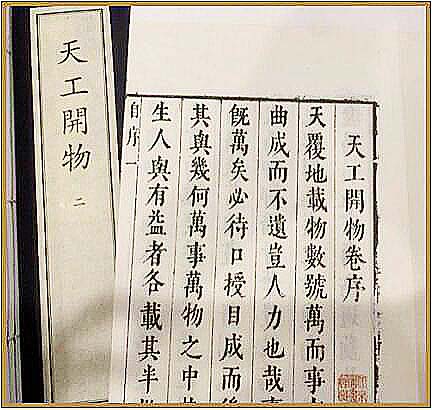 天工開物卷序
天覆地載物數號萬而事
曲成而不遺豈人力也哉事
旣萬矣必待口授目成而後
其與幾何萬事萬物之中
生人與有益者各載其半
序一
天工開物 二